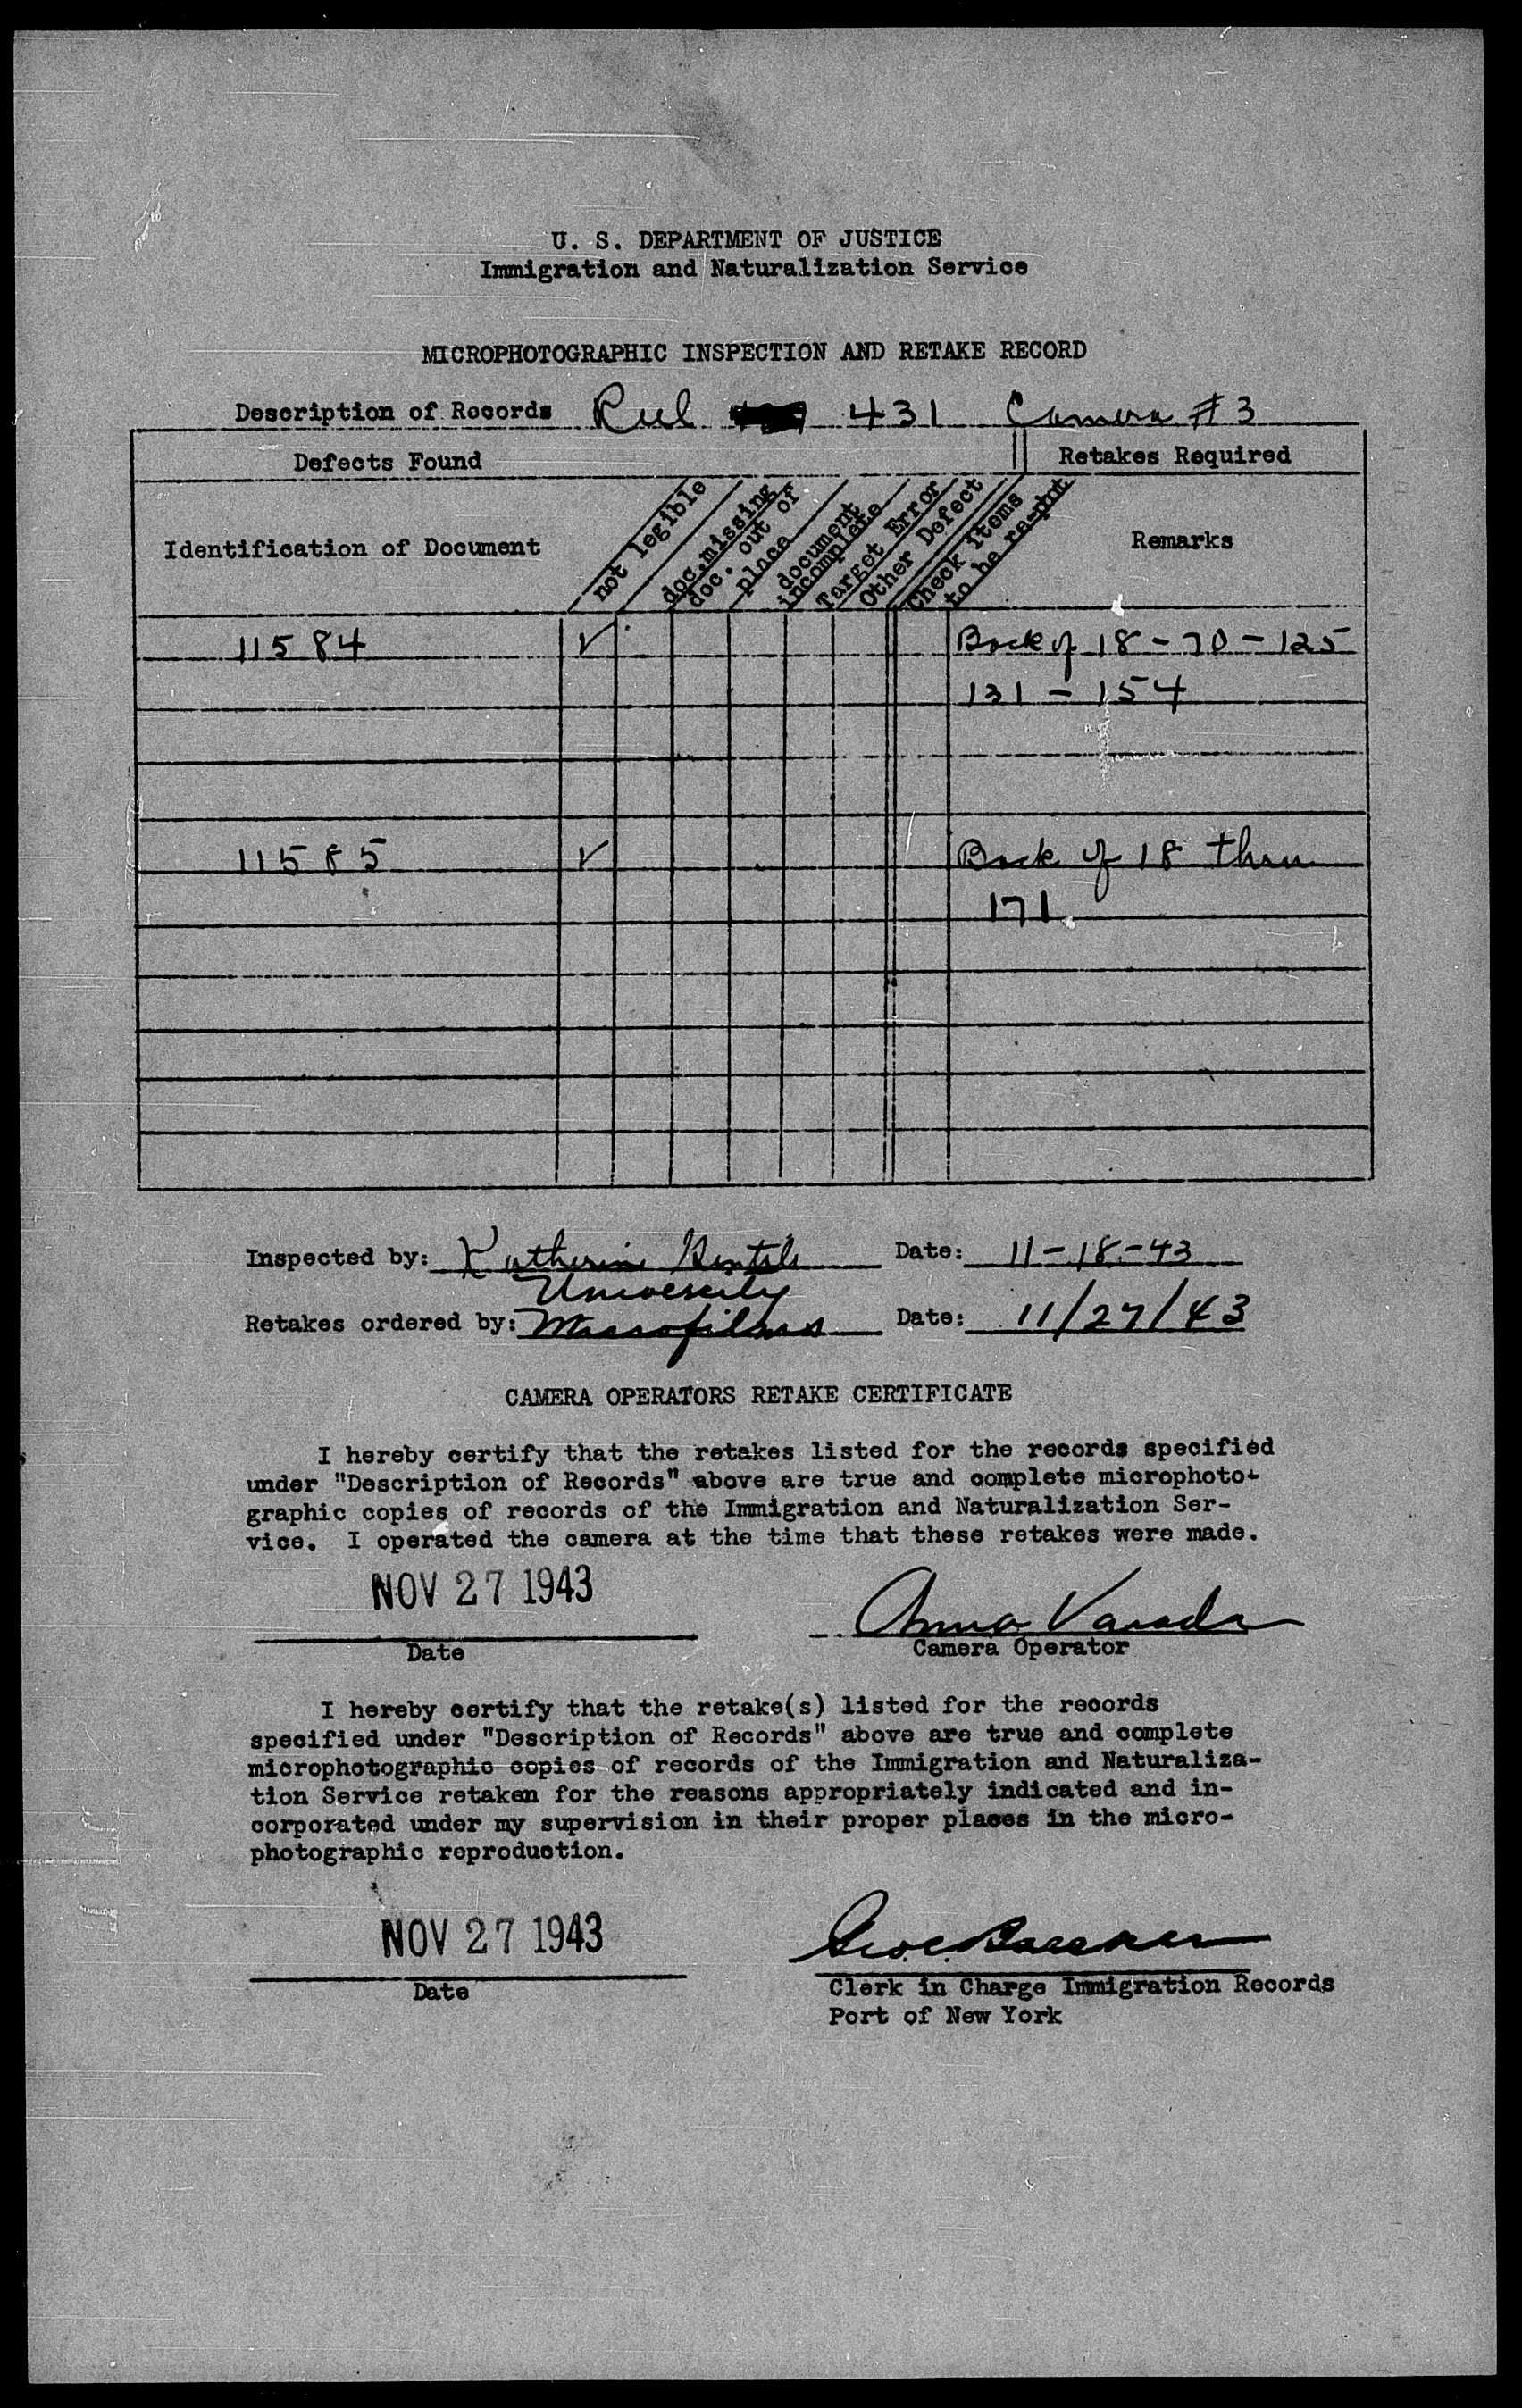 U. S. DEPARTMENT OF JUSTICE
Immigration and Naturalization Service
MICROPHOTOGRAPHIC INSPECTION AND RETAKE RECORD
Description of Records Reel 431 Camera # 3
Defects Found Retakes Required
Identification of Document
not legible
doc. missing
doc. out of
place
document
incomplete
Target Error
Other Defect
Check items
to be re-pht
Remarks
11584 ✓ Back of 18 - 70 - 125
131 - 154
11585 ✓ Back of 18 thru
171
Inspected by: Katherine Date: 11-18-43
University
Retakes ordered by: Microfilms Date: 11/27/43
CAMERA OPERATORS RETAKE CERTIFICATE
I hereby certify that the retakes listed for the records specified
under "Description of Records" above are true and complete microphoto-
graphic copies of records of the Immigration and Naturalization Ser-
vice. I operated the camera at the time that these retakes were made.
NOV 27 1943
Anna
Date
Camera Operator
I hereby certify that the retake(s) listed for the records
specified under "Description of Records" above are true and complete
microphotographic copies of records of the Immigration and Naturaliza-
tion Service retaken for the reasons appropriately indicated and in-
corporated under my supervision in their proper places in the micro-
photographic reproduction.
NOV 27 1943
Date
Clerk in Charge Immigration Records
Port of New York